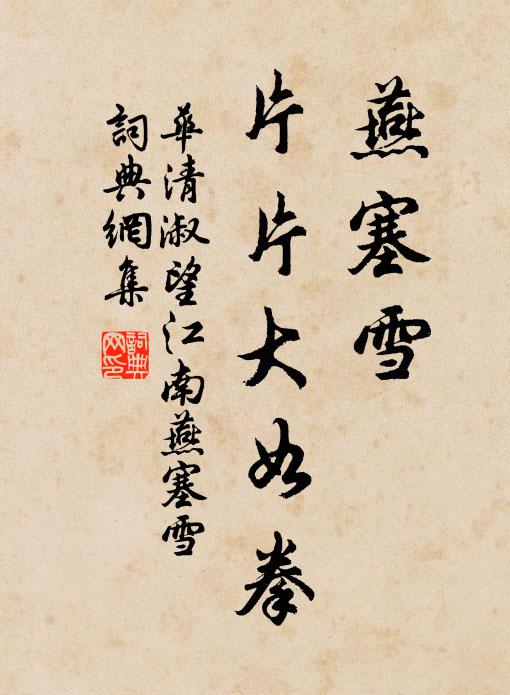 燕塞雪
片片大如拳
華清淑望江南燕塞雪
詞典網集
詞典網印